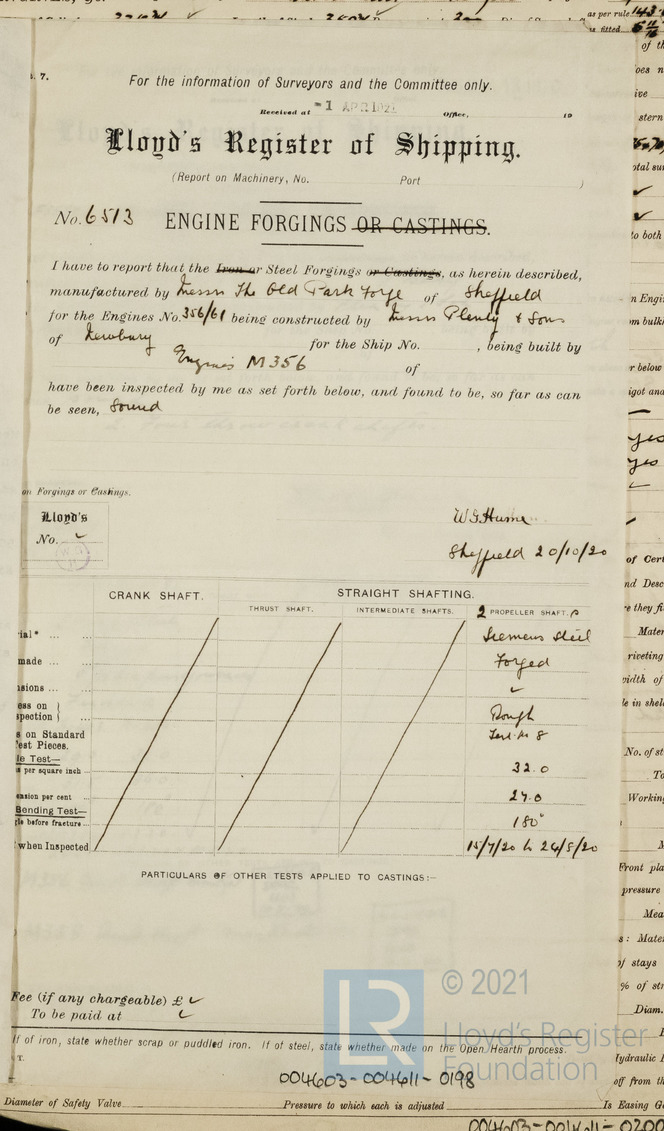 as per rule 143
as fitted
of th
. 7.
For the information of Surveyors and the Committee only.
Received at -1 APR 1921 Office, 19
Lloyd's Register of Shipping.
(Report on Machinery, No. Port )
No. 6513 ENGINE FORGINGS OR CASTINGS.
I have to report that the Iron or Steel Forgings or Castings, as herein described,
manufactured by Messrs The Old Park Forge of Sheffield
for the Engines No. 356/61 being constructed by Messrs Plenty & Sons
of Newbury for the Ship No. , being built by
Engines M356 of
have been inspected by me as set forth below, and found to be, so far as can
be seen, Sound
on Forgings or Castings.
Lloyd's
No.
W.G. Hume
Sheffield 20/10/20
CRANK SHAFT. STRAIGHT SHAFTING.
THRUST SHAFT. INTERMEDIATE SHAFTS. 2 PROPELLER SHAFT.
ial* ... ... Siemens Steel
made ... Forged
nsions ... ...
ess on
spection ... Rough
s on Standard
Test Pieces. Test No 8
le Test—
s per square inch ... 32.0
ension per cent ... 27.0
Bending Test—
gle before fracture ... 180°
when Inspected 15/7/20 to 24/8/20
PARTICULARS OF OTHER TESTS APPLIED TO CASTINGS:-
Fee (if any chargeable) £
To be paid at
If of iron, state whether scrap or puddled iron. If of steel, state whether made on the Open Hearth process.
T.
LR
© 2021
Lloyd's Register
Foundation
004603-004611-0198
Diameter of Safety Valve Pressure to which each is adjusted Is Easing G
004603-004611-0200
oes n
ive
stern
otal su
to both
n Engi
m bulk
r below
igot and
yes
yes
of Cert
nd Desc
e they fi
Mater
riveting
width of
le in shel
No. of st
To
Working
Front pla
pressure
Mea
s: Mater
of stays
% of str
Diam.
Hydraulic
off from th